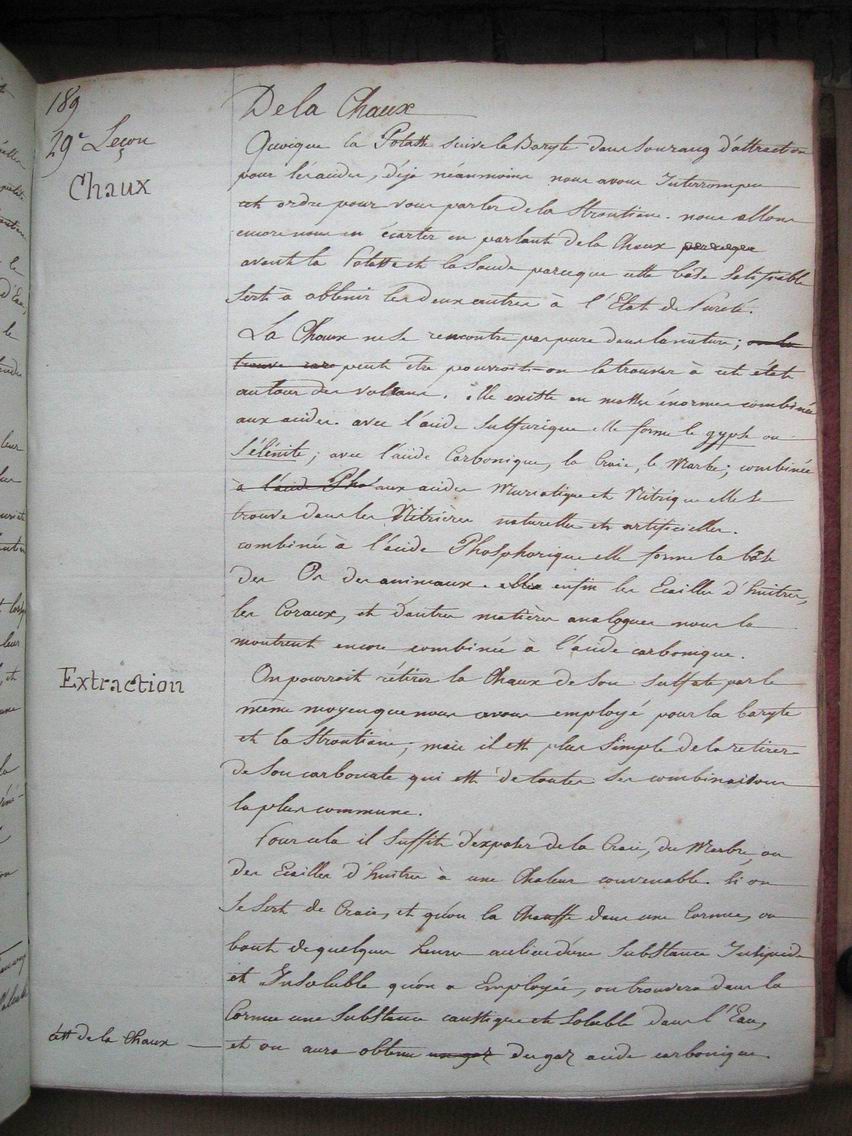 189
De la Chaux
29e Leçon
Chaux
Quoique la Potasse suive la Baryte dans son rang d'attraction
pour les acides, déjà néanmoins nous avons Interrompu
cet ordre pour vous parler de la Strontiane. nous allons
encore nous en écarter en parlant de la Chaux parceque
avant la Potasse et la Soude parceque cette base Salifiable
sert à obtenir les deux autres à l'Etat de Pureté.
La Chaux ne se rencontre pas pure dans la nature; on la
trouve rare peut être pourroit-on la trouver à cet état
autour des volcans. elle existe en masses énormes combinée
aux acides. avec l'acide Sulfurique elle forme le gypse ou
Sélénite; avec l'acide Carbonique, la Craie, le Marbre; combinée
à l'acide Pho aux acides Muriatique et Nitrique elle se
trouve dans les Nitrières naturelles et artificielles.
combinée à l'acide Phosphorique elle forme la base
des Os des animaux. enfin les Ecailles d'huitres,
les Coraux, et d'autres matières analogues nous la
montrent encore combinée à l'acide carbonique.
Extraction
On pourroit rétirer la Chaux de son sulfate par le
même moyen que nous avons employé pour la baryte
et la Strontiane; mais il est plus simple de la retirer
de son carbonate qui est de toutes ses combinaisons
la plus commune.
Pour cela il suffit d'exposer de la Craie, du Marbre, ou
des Ecailles d'huitres à une Chaleur convenable. Si on
se sert de Craie, et qu'on la Chauffe dans une Cornue, au
bout de quelques heures au lieu d'une Substance Insipide
et Insoluble qu'on a Employée, on trouvera dans la
Cornue une Substance caustique et Soluble dans l'Eau,
c'est de la Chaux
et on aura obtenu un gaz du gaz acide carbonique.